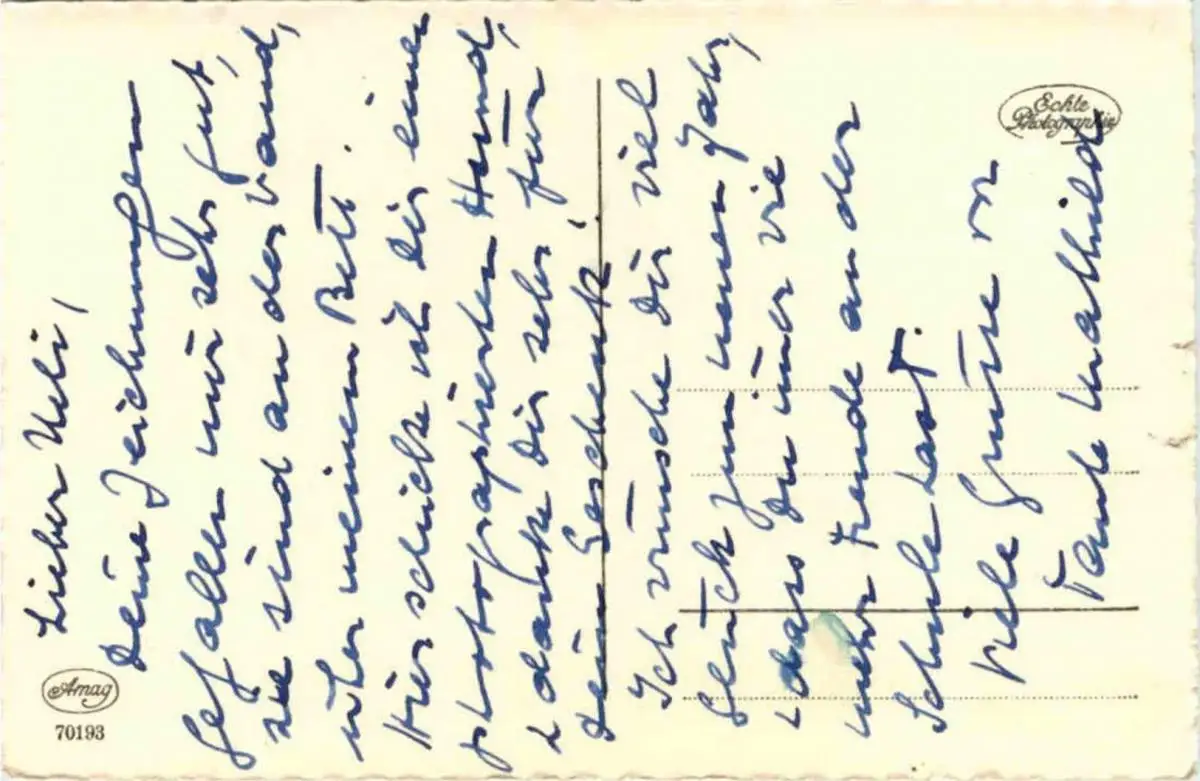 Lieber Ueli,
Deine Zeichnungen
gefallen mir sehr gut,
sie sind an der Wand,
über meinem Bett.
Hier schicke ich Dir einen
photographierten Hund,
& danke Dir sehr für
Dein Geschenk!
Ich wünsche Dir viel
Glück zum neuen Jahr,
& dass Du immer wie
mehr Freude an der
Schule hast.
Viele Grüsse von
Tante Mathild
Echte
Photographie
Amag
70193